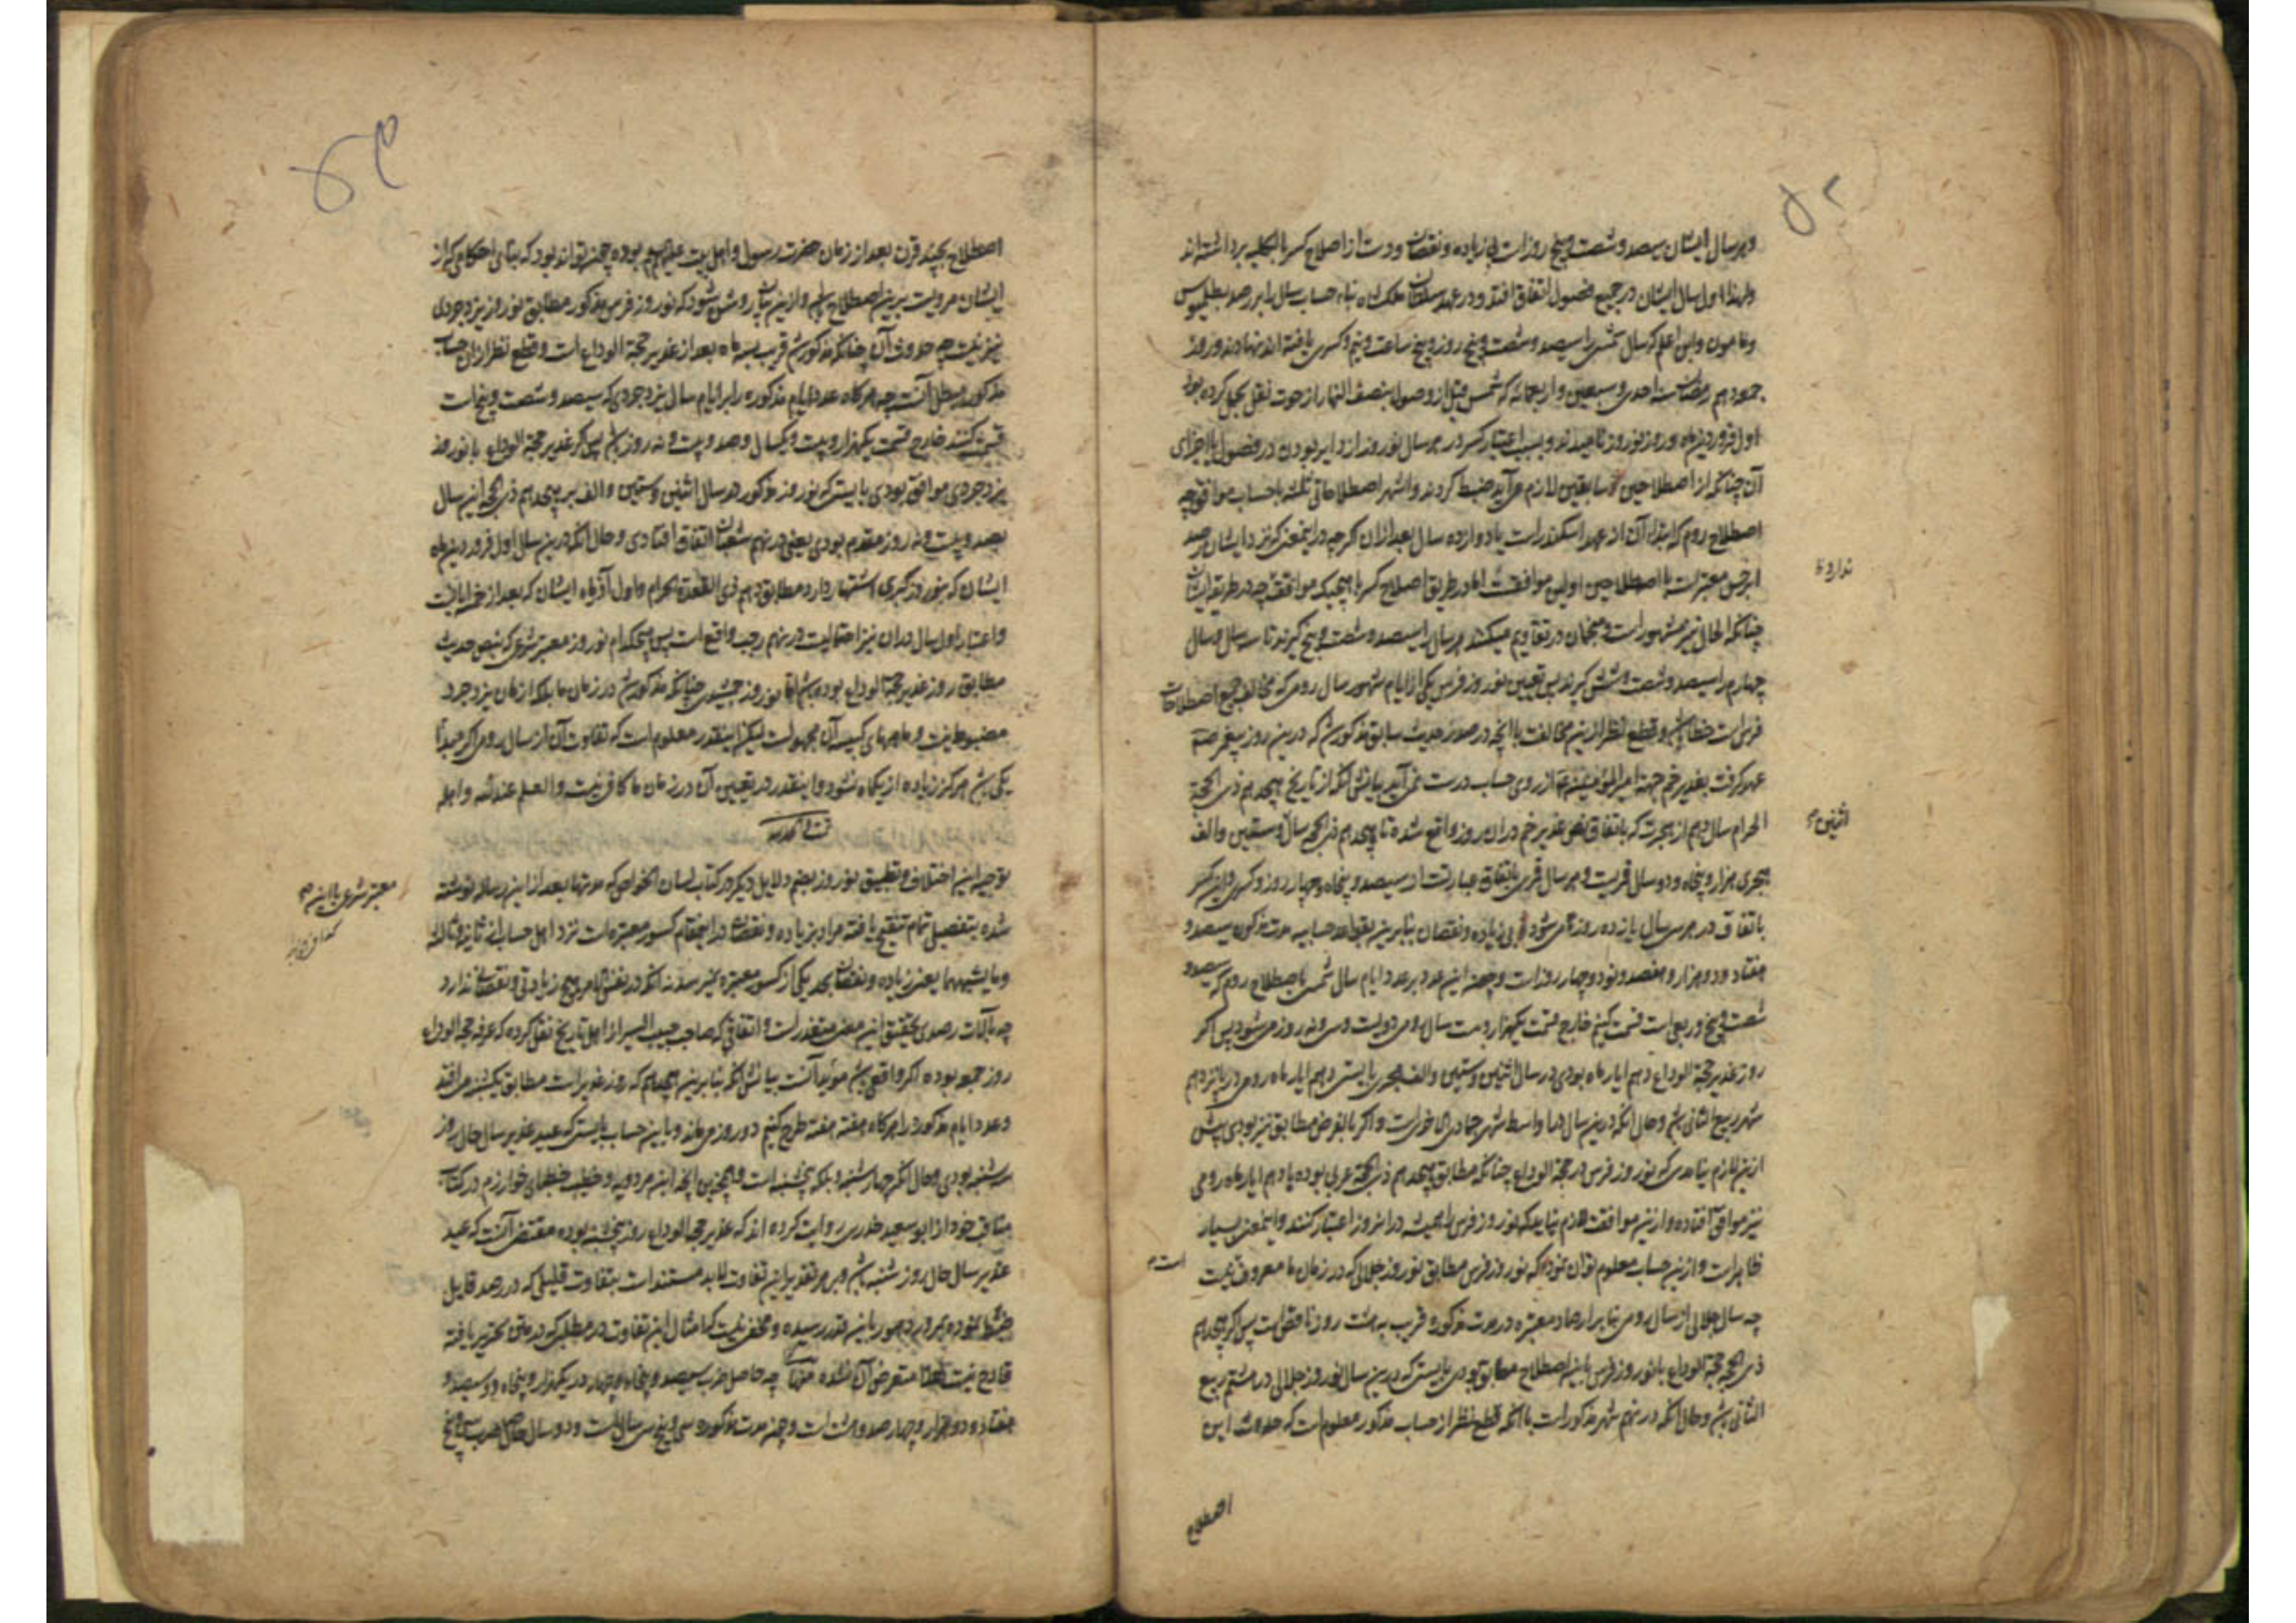 ۵۲
و هر سال ایشان سیصد و شصت و پنج روز است بی زیاده و نقصان و دست از اصلاح کسر بالکلیه برداشته اند
و لهذا اول سال ایشان در جمیع فصول اتفاق افتد و در عهد سلطان ملکشاه بناء حساب سال را بر رصد بطلمیوس
و مامون و ابن اعلم که سال شمسی را سیصد و شصت و پنج روز و پنج ساعت و نیم و کسری یافته اند نهادند و روز
جمعه دهم رمضان سنه احدی و سبعین و اربعمائه که شمس قبل از وصول بنصف النهار از حوت نقل بحمل کرده بود
اول فروردین ماه و روز نوروز نامیدند و بسبب اعتبار کسر در هر سال نوروز از دایر بودن در فصول یا اجزای
آن چنانکه از اصطلاحین سابقین لازم می آید ضبط کردند و اشهر اصطلاحات ثلثه با حساب موافق چه
اصطلاح روم که ابتداء آن از عهد اسکندر است یا دوازده سال بعد از ان اگر چه در اینمعنی که نزد ایشان رصد
ابرخس معتبر است با اصطلاحین اولین موافقت اما در طریق اصلاح کسر با هیچیک موافق چه در طریقه ایشان
ندارد
چنانکه الحال نیز مشهور است و منجمان در تقاویم میکنند هر سال را سیصد و شصت و پنج گیرند تا سه سال و سال
چهارم را سیصد و شصت و شش گیرند پس تعیین نوروز فرس بیکی از ایام شهور سال رومی که مخالف جمیع اصطلاحات
فرس است خطا باشد و قطع نظر ازین مخالفت با آنچه در صدر حدیث سابق مذکور شد که درین روز پیغمبر ص
عهد گرفت بغدیر خم جهة امیرالمؤمنین ع از روی حساب درست نمی آید بیانش آنکه از تاریخ هیجدهم ذی الحجة
الحرام سال دهم از هجرت که باتفاق نص غدیر خم در ان روز واقع شده تا هیجدهم ذی الحجه سال و ستین و الف
اثنین
هجری هزار و پنجاه و دو سال قمریست و هر سال قمری باتفاق عبارتست از سیصد و پنجاه و چهار روز و کسری و این کسر
باتفاق در هر سی سال یازده روز تمام میشود بی زیاده و نقصان بنابرین بقواعد حسابیه مدت مذکور سیصد و
هفتاد و دو هزار و هفتصد و نود و چهار روز است و چون این عدد بر عدد ایام سال شمسی باصطلاح روم که سیصد و
شصت و پنج و ربعی است قسمت کنیم خارج قسمت یکهزار و بیست سال رومی و دویست و سی و نه روز می شود پس اگر
روز غدیر حجة الوداع دهم ایار ماه بودی در سال اثنین و ستین و الف هجری بایستی دهم ایار ماه رومی در پانزدهم
شهر ربیع الثانی باشد و حال آنکه درین سال در اواسط شهر جمادی الاخر است و اگر بالفرض مطابق نیز بودی پیش
ازین لازم نیامدی که نوروز فرس در حجة الوداع چنانکه مطابق هیجدهم ذی الحجة عربی بوده با دهم ایار ماه رومی
نیز موافق افتاده و ازین موافقت لازم نیاید که نوروز فرس را همیشه در انروز اعتبار کنند و اینمعنی بسیار
ظاهر است و ازین حساب معلوم توان نمود که نوروز فرس مطابق نوروز جلالی که در زمان ما معروف نیست
است
چه سال جلالی از سال رومی بنابر ارصاد معتبره در مدت مذکوره قریب به هشت روز ناقص است پس اگر هیجدهم
ذی الحجه حجة الوداع با نوروز فرس باین اصطلاح مطابق بودی بایستی که درین سال نوروز جلالی در هشتم ربیع
الثانی باشد و حال آنکه در نهم شهر مذکور است با آنکه قطع نظر از حساب مذکور معلوم است که حدوث این
اصطلاح
اصطلاح بچند قرن بعد از زمان حضرت رسول و اهل بیت علیهم بوده چون تواند بود که بنای احکامی که از
ایشان مرویست برین اصطلاح باشد و ازین بیان روشن شود که نوروز فرس مذکور مطابق نوروز یزدجردی
نیز نیست چه حدوث آن چنانکه مذکور شد قریب بسه ماه بعد از غدیر حجة الوداع است و قطع نظر از ان حساب
مذکور مبطل آنست چه هر گاه عدد ایام مذکوره را بر ایام سال یزدجردی که سیصد و شصت و پنج است
قسمت کنند خارج قسمت یکهزار و بیست و یکسال و صد و بیست و نه روز باشد پس اگر غدیر حجة الوداع با نوروز
یزدجردی موافق بودی بایستی که نوروز مذکور در سال اثنین و ستین و الف بر هیجدهم ذی الحجه این سال
بصد و بیست و نه روز مقدم بودی یعنی در نهم شعبان اتفاق افتادی و حال آنکه درین سال اول فروردین ماه
ایشان که بنوروز کبری اشتهار دارد مطابق دهم ذی القعدة الحرام و اول آذر ماه ایشان که بعد از
و اعتبار اول سال در ان نیز احتمالیست در نهم رجب واقع است پس هیچکدام نوروز معتبر شرعی که بنص حدیث
مطابق روز غدیر حجة الوداع بوده باشد اما نوروز چنانکه مذکور شد در زمان ما بلکه از زمان یزدجرد
مضبوط نیست و ماههای کبیسه آن مجهولست لیکن اینقدر معلوم است که تفاوت آن از سال رومی اگر مبدأ
یکی باشد هرگز زیاده از یکماه نشود و اینقدر در تعیین آن در زمان ما کافی نیست و العلم عند الله و اهله
توجیه این اختلاف و تطبیق نوروز بعضم دلایل دیگر در کتاب لسان الخواص که مدتها بعد از این رساله نوشته
معتبر شرعی با این
شده بتفصیل تمام تنقیح یافته مراد بزیاده و نقصان در اینمقام کسور معتبره است نزد اهل حساب از ثانیه و ثالثه
و ما یشبههما یعنی زیاده و نقصان بحد یکی از کسور معتبره نمیرسد نه آنکه در نفس الامر هیچ زیادتی و نقصان ندارد
چه بآلات رصدی تحقیق این معنی متعذر است و اتفاقی که صاحب حبیب السیر از اهل تاریخ نقل کرده که عرفه حجة الوداع
روز جمعه بوده اگر واقعی باشد مؤید آنست بیانش آنکه بنابرین هیجدهم که روز غدیر است مطابق یکشنبه می افتد
و عدد ایام مذکور را هر گاه هفته هفته طرح کنیم دو روز می ماند و باین حساب بایستی که عید غدیر سال حال روز
سه شنبه بودی و حال آنکه چهارشنبه و بلکه پنجشنبه است و همچنین آنچه ابن مردویه و خطیب خطبای خوارزم در کتاب
مناقب خود از ابو سعید خدری روایت کرده اند که غدیر حجة الوداع روز پنجشنبه بوده مقتضی آنست که عید
غدیر سال حال روز شنبه باشد و بر هر تقدیر این تفاوت لابد مستند است بتفاوت قلیلی که در رصد قابل
ضبط نبوده بمرور دهور باین قدر رسیده و مخفی نیست که امثال این تفاوت در مطلبی که در متن تحریر یافته
قادح نیست لهذا متعرض آن نشده منه چه حاصل ضرب سیصد و پنجاه و چهار در یکهزار و پنجاه و دو سیصد و
هفتاد و دو هزار و چهارصد و هشت است و چون مدت مذکوره سی و پنج سی سال است و دو سال حاصل ضرب سی و پنج